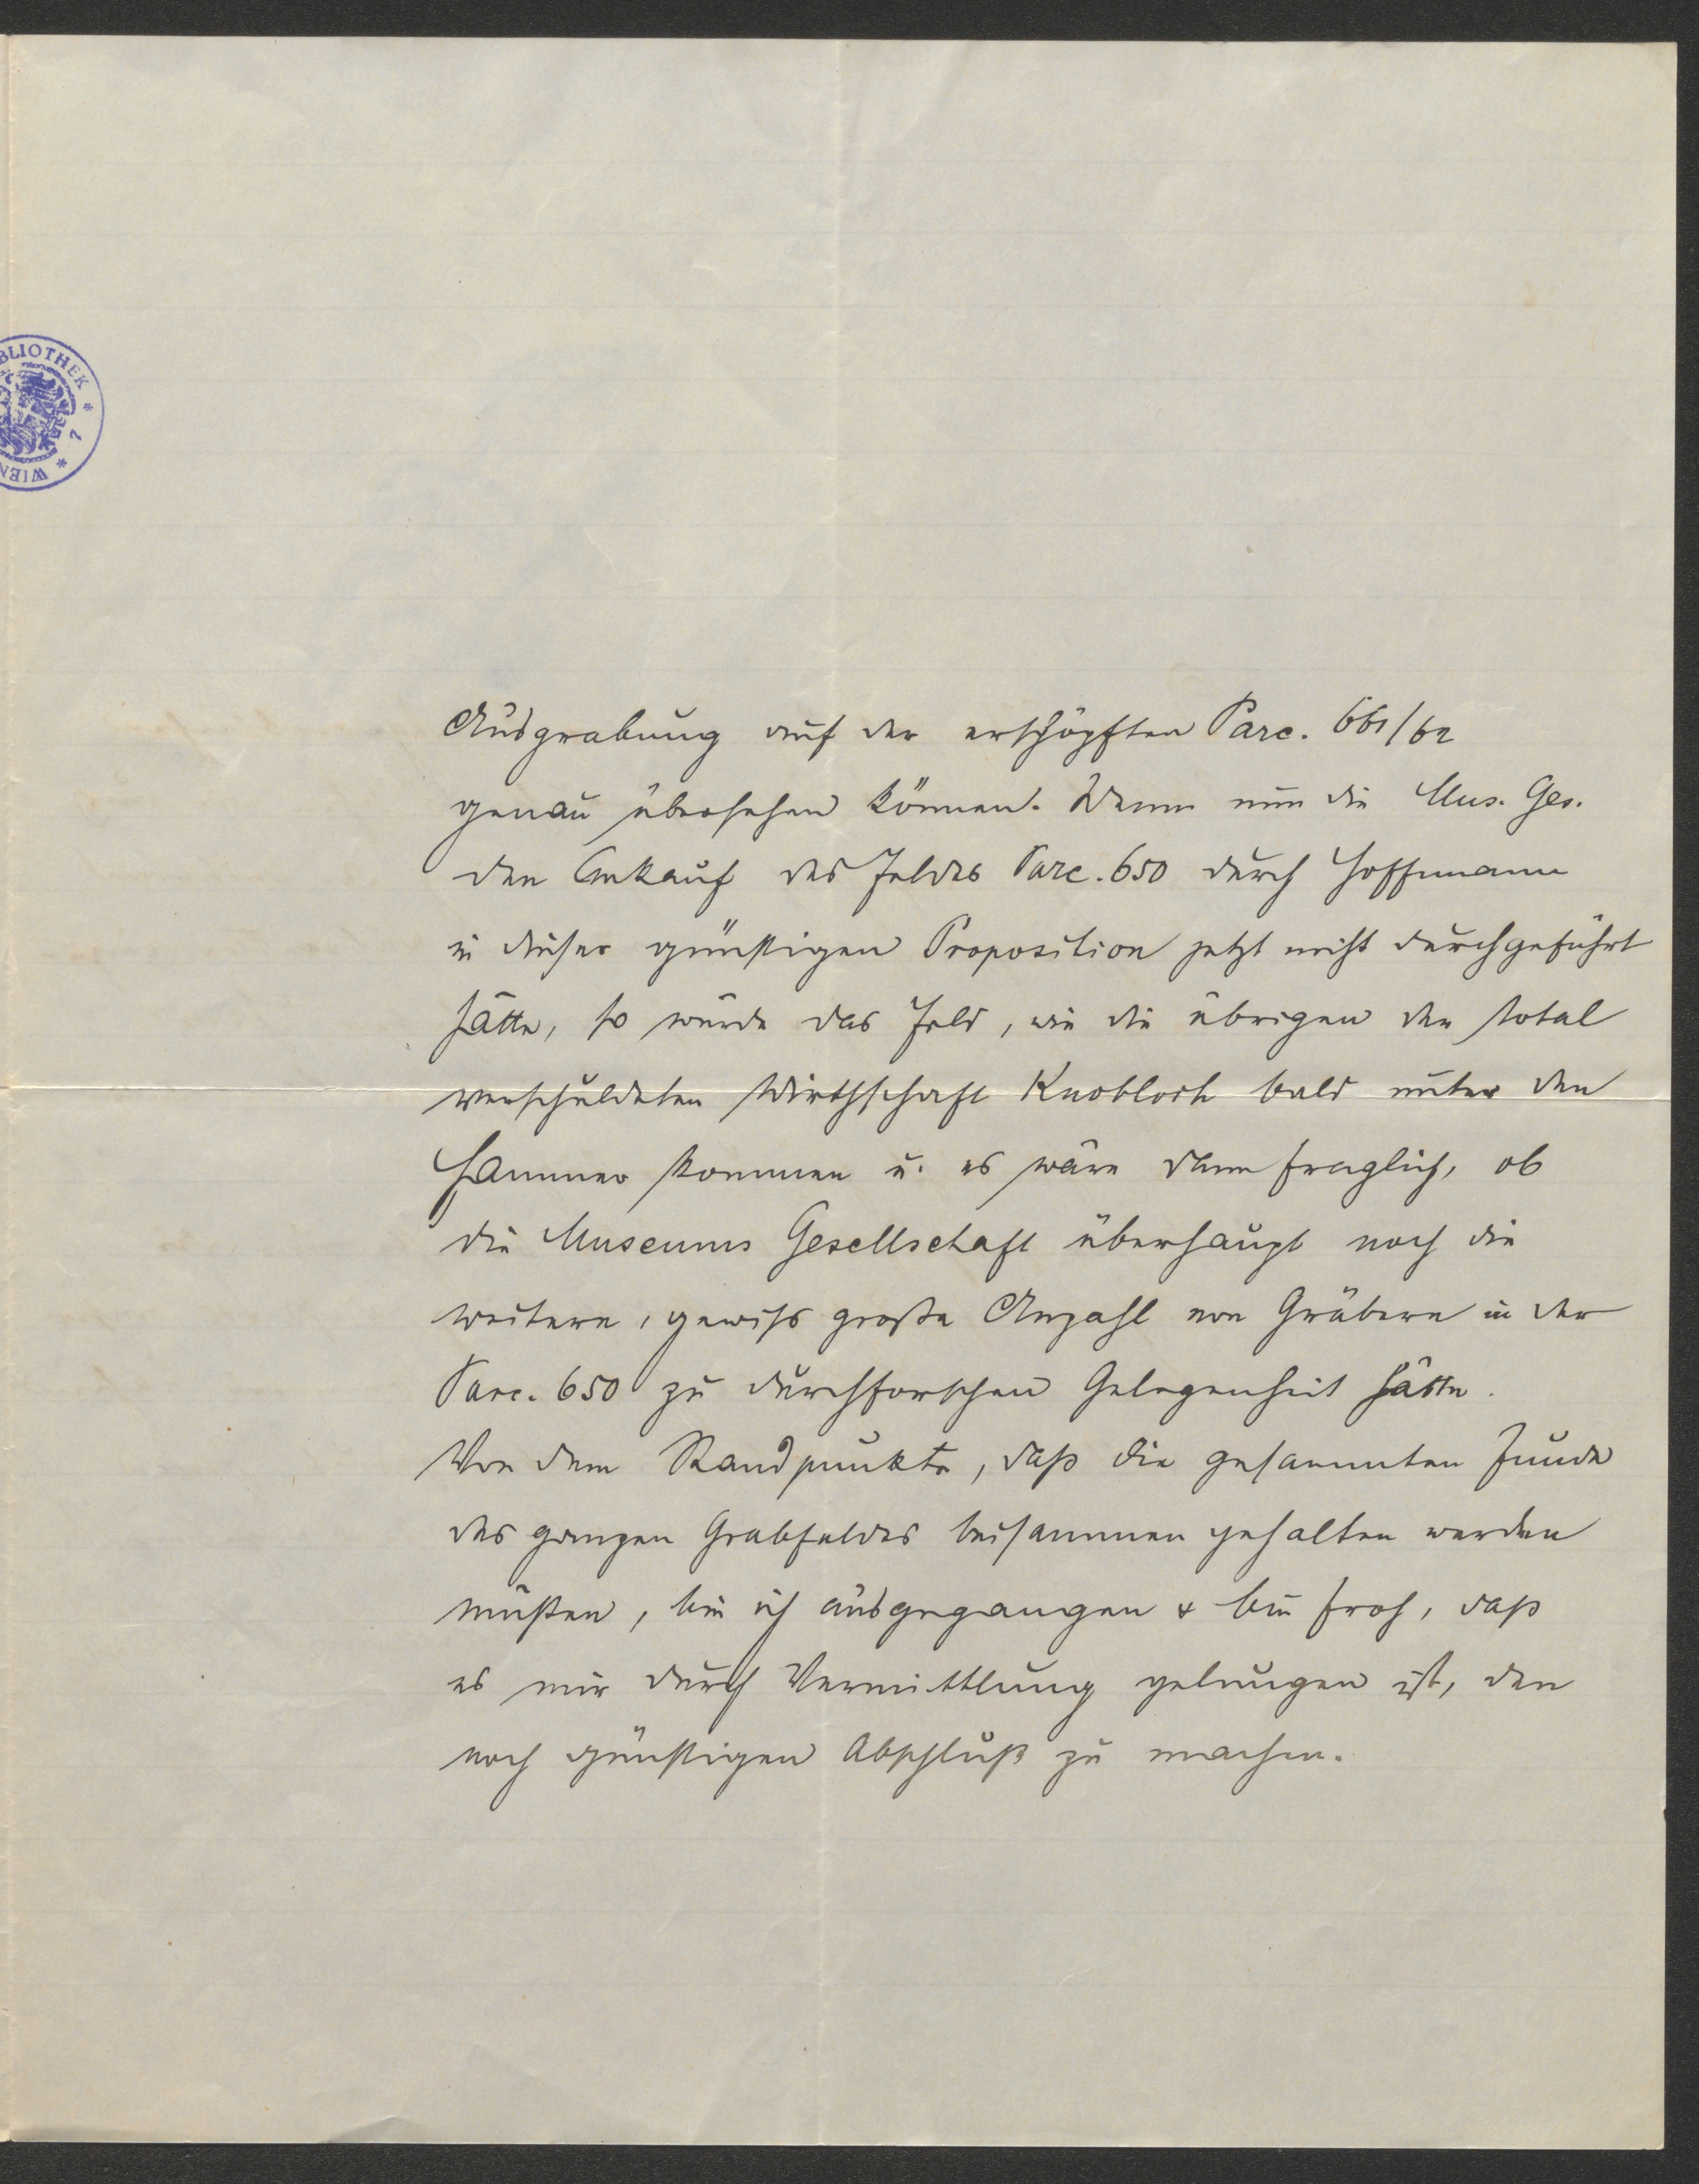 BLIOTHEK * 7 * WIEN
Ausgrabung auf der erschöpften Parc. 661/62
genau übersehen können. Wenn nun die Mus. Ges.
den Ankauf des Feldes Parc. 650 durch Hoffmann
in dieser günstigen Proposition jetzt nicht durchgeführt
hätte, so würde das Feld, wie die übrigen der total
verschuldeten Wirthschaft Knobloch bald unter den
Hammer kommen u. es wäre dann fraglich, ob
die Museums Gesellschaft überhaupt noch die
weitere, gewiss große Anzahl von Gräbern in der
Parc. 650 zu durchforschen Gelegenheit hätte.
Von dem Standpunkte, daß die gesammten Funde
des ganzen Grabfeldes beisammen gehalten werden
müßen, bin ich ausgegangen & bin froh, daß
es mir durch Vermittlung gelungen ist, den
noch günstigen Abschluß zu machen.